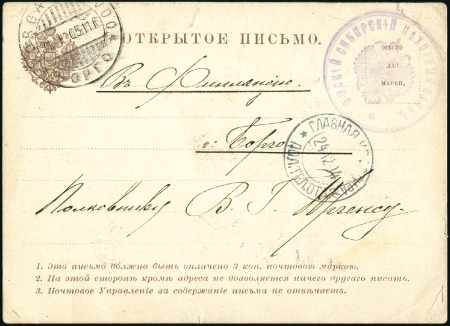 ОТКРЫТОЕ ПИСЬМО.
МѢСТО
ДЛЯ
МАРКИ.
Въ Финляндію.
г. Борго
ГЛАВНАЯ
Полковнику В. Г.
1. Это письмо должно быть оплачено 3 коп. почтовою маркою.
2. На этой сторонѣ кромѣ адреса не дозволяется ничего другаго писать.
3. Почтовое Управленіе за содержаніе письма не отвѣчаетъ.